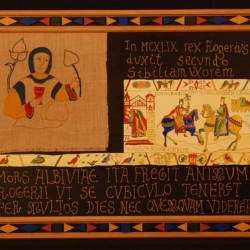 In MCXLIX rex Rogerius
duxit secundo
Sibiliam Uxorem
MORS ALBIVIAE ITA FREGIT ANIMUM
ROGERII UT SE CUBICULO TENERET
PER DIES NEC VIDERET